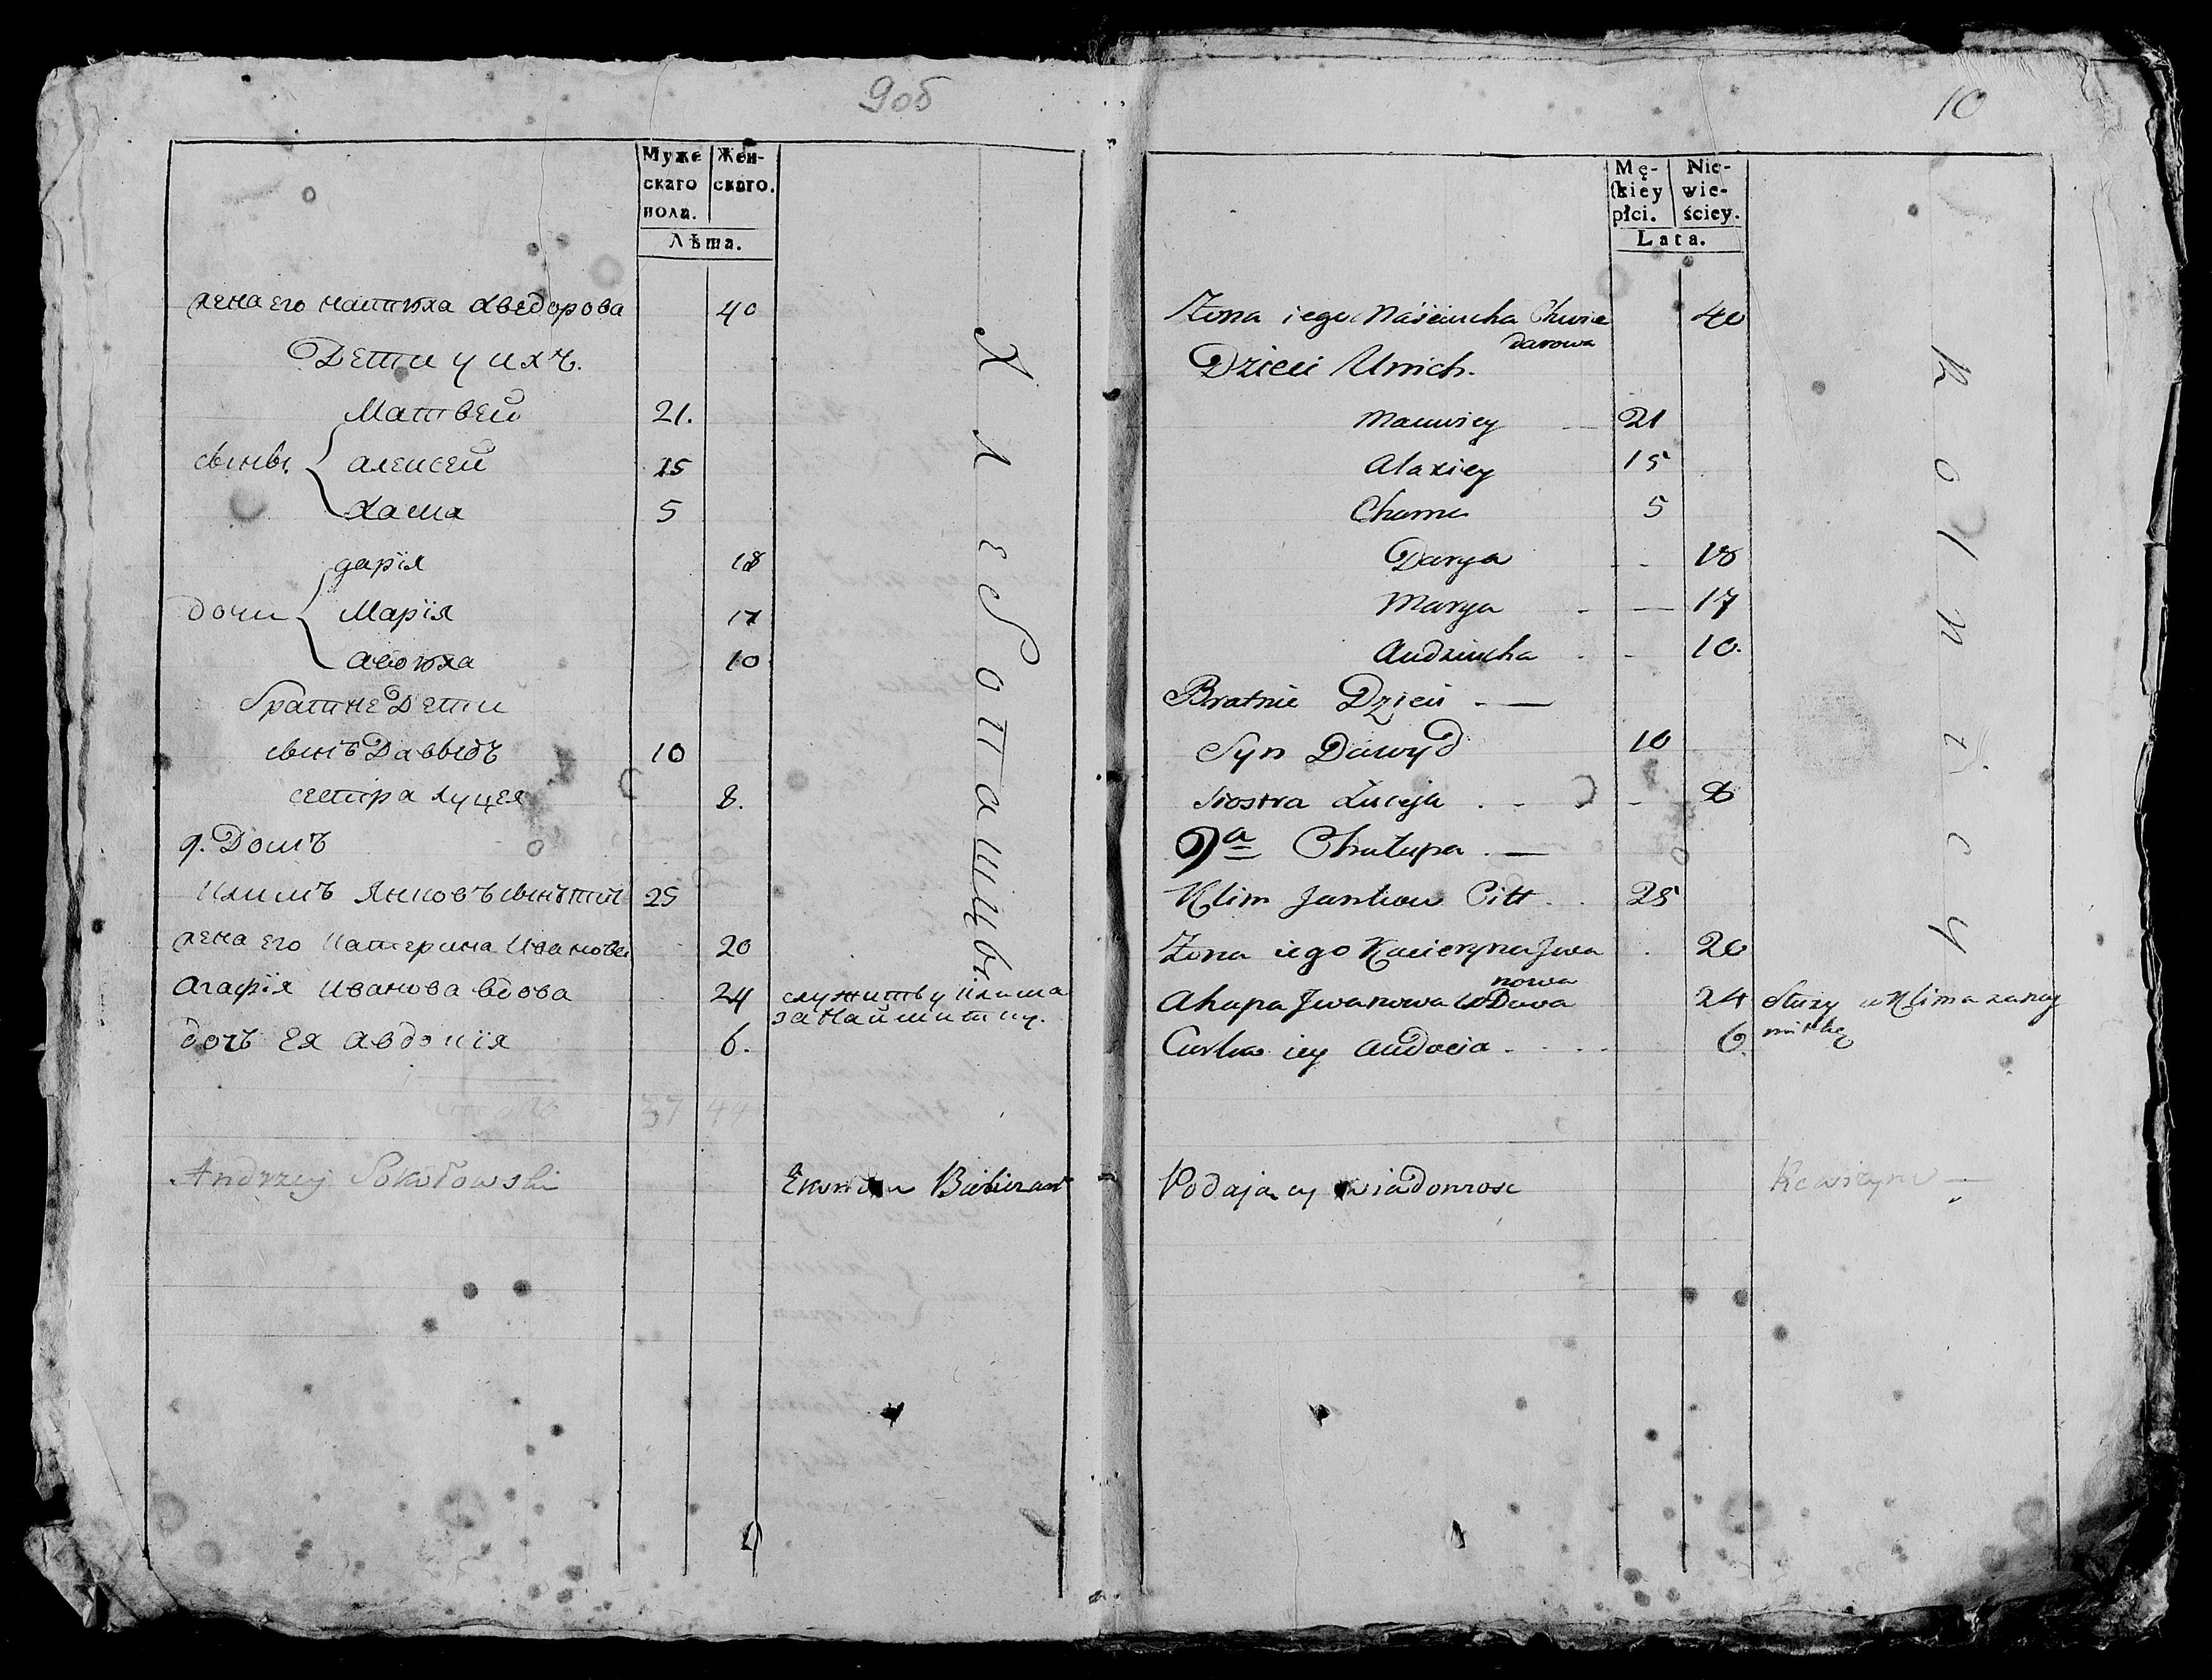 9об
Муже
скаго
пола.
Жен-
скаго.
Лѣта.
жена его настюха хведорова
40
Дети у ихъ.
Матвей
21.
сыны
алексей
15
Хама
5
дарїя
18
дочи
Марїя
17
авдюха
10
братне Дети
сынъ Давыдъ
10
сестра луцея
8.
9. Домъ
Климъ Янковъ сынъ
25
жена его Катерина Иванова
20
агафїя Иванова вдова
24
служитъ у Клима
за наймитку.
дочъ Ея авдоцїя
6.
37 44
Andrzey Sokołowski
Ekonom
Хлебопашцы.
10
Mę-
skiey
płci.
Nie-
wie-
ściey.
Lata.
Żona iego Naściucha Chwie
darowa
40
Dzieci Unich.
Maciwiey
21
Alaxiey
15
Chama
5
Darya
18
Marya
17
Audziucha
10.
Bratnie Dzieci
Syn Dawyd
10
Siostra Łuceja
8
9a Chałupa
Klim Jankow Citt
25
Żona iego Kacieryna Jwa
nowa
20
Ahapa Jwanowa wDowa
24
Służy u Klima zanay
mitkę
Curka iey Audocia
6.
Podaiący wiadomosc
Rolnicy